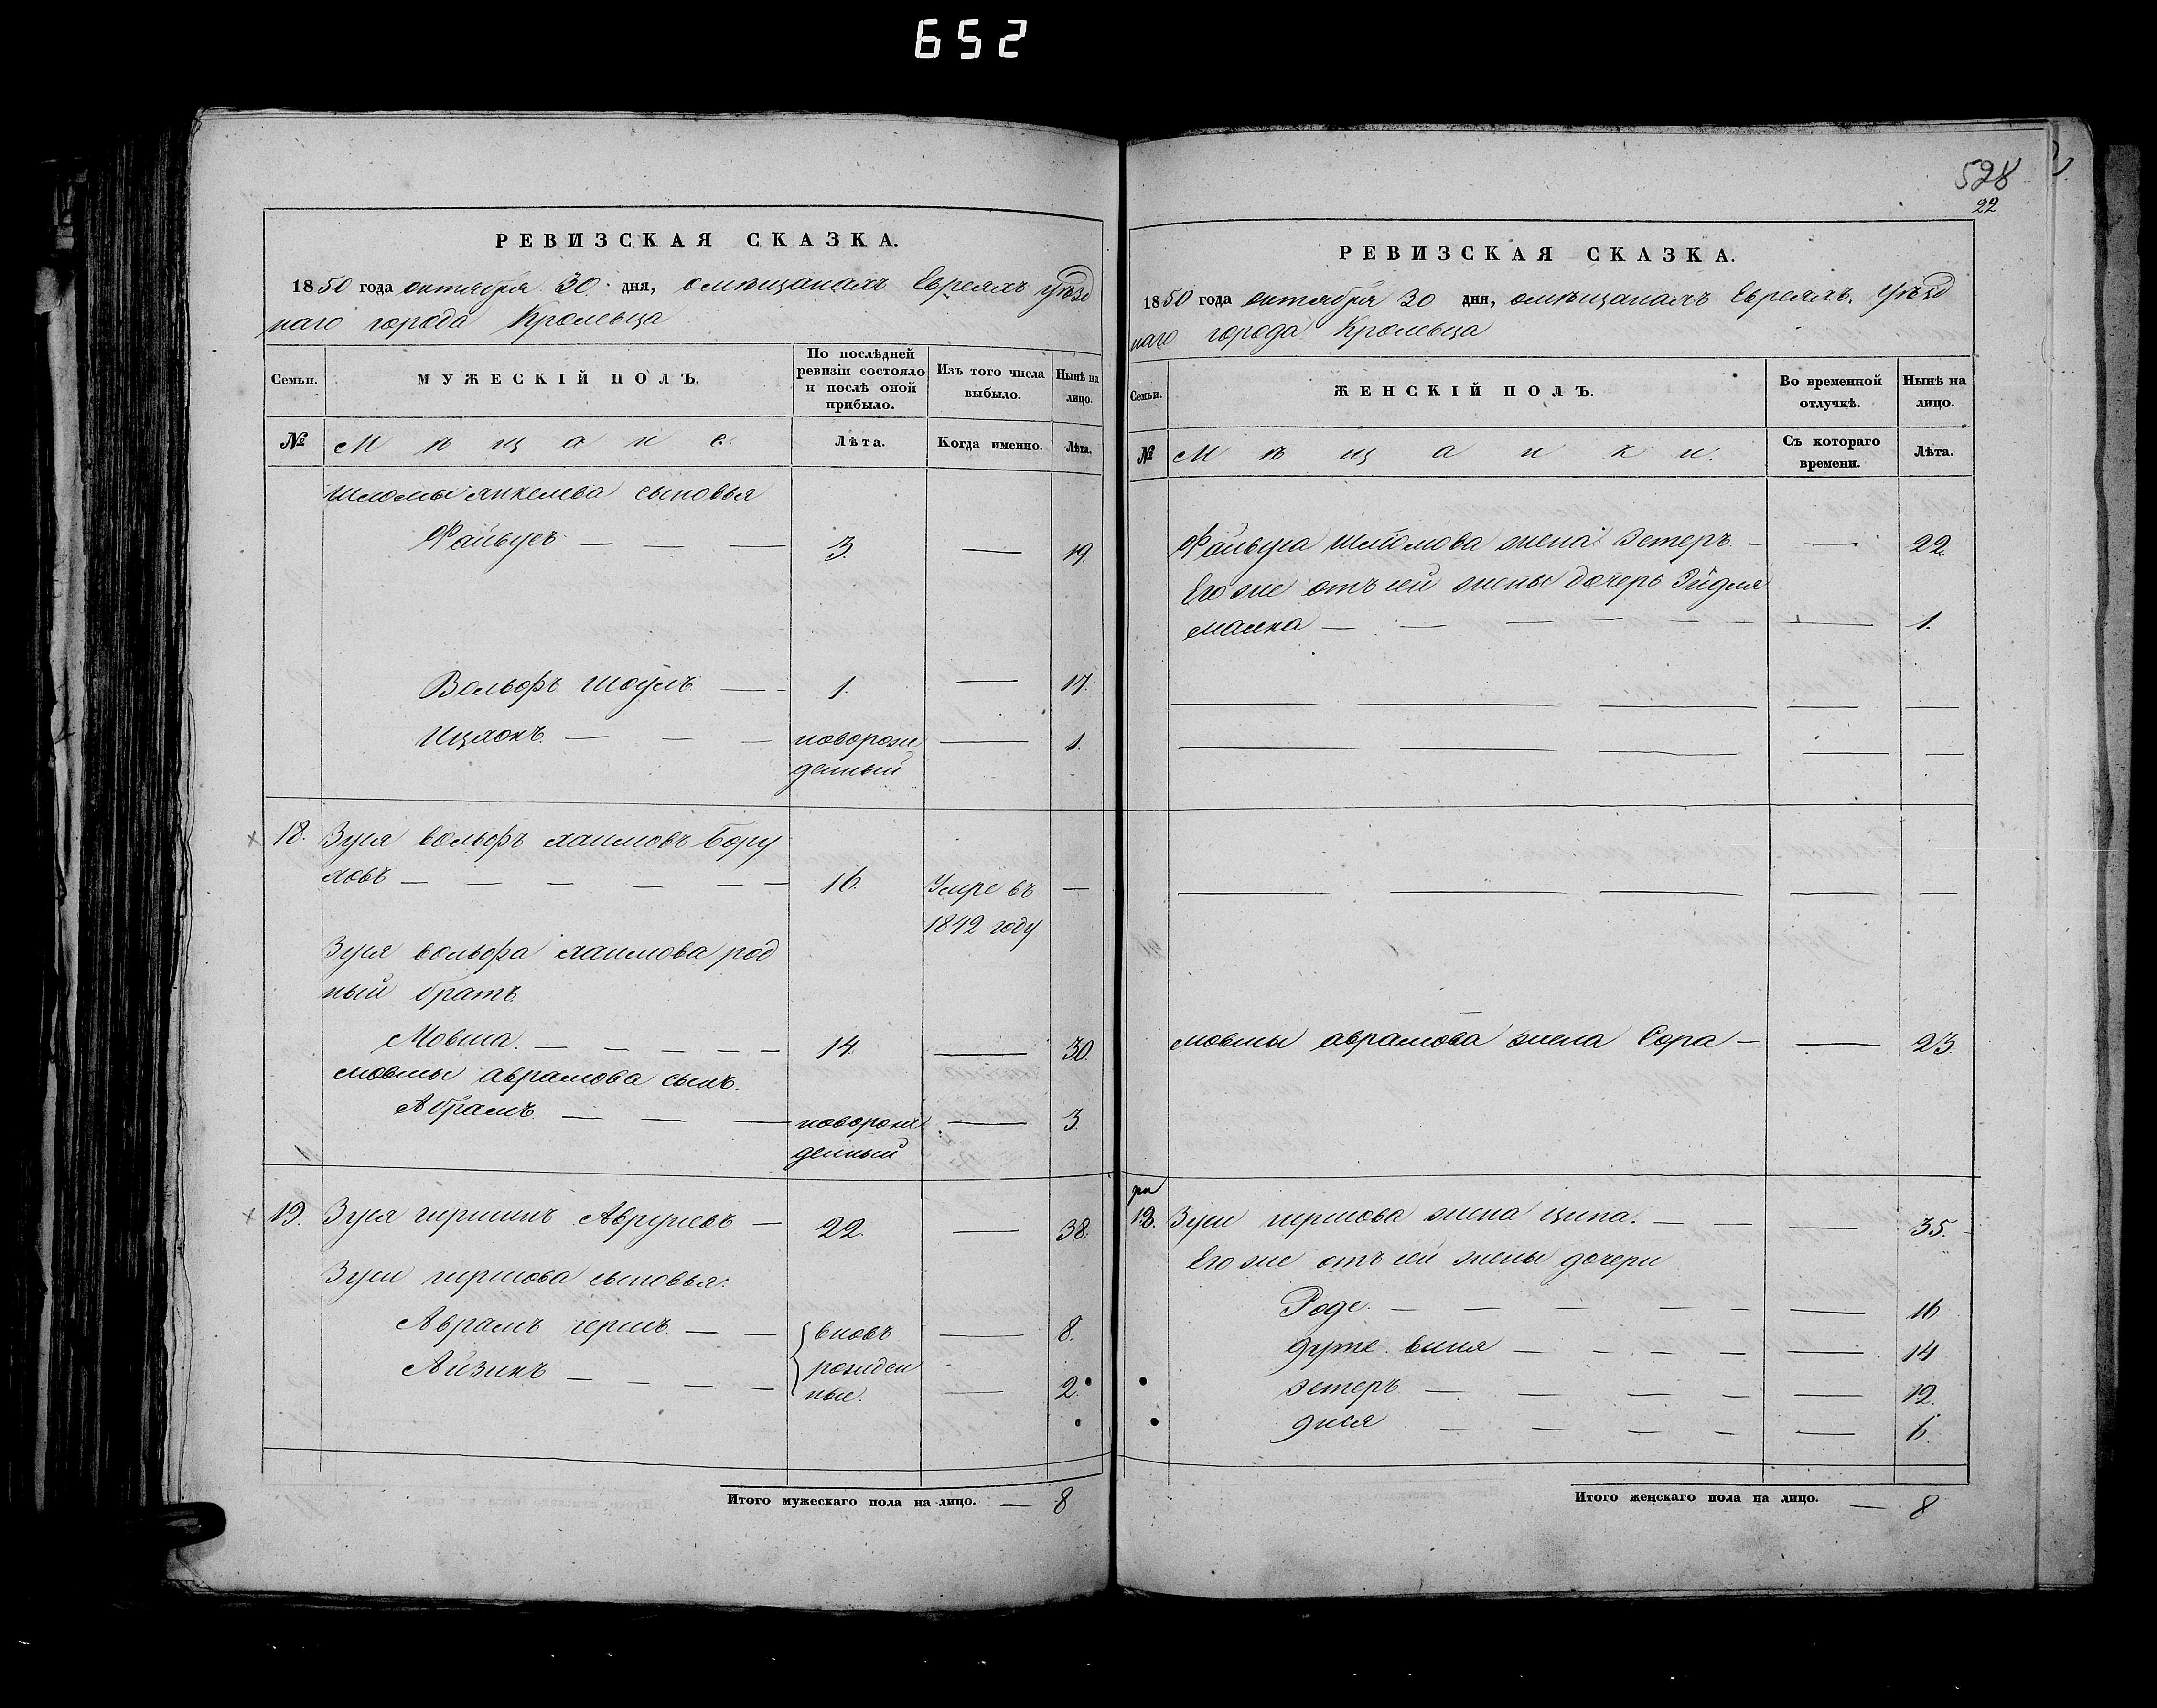 652
528
22
РЕВИЗСКАЯ СКАЗКА.
1850 года октября 30 дня, омѣщанахъ Евреяхъ уѣзд
наго города Кролевца
Семьи.
МУЖЕСКІЙ ПОЛЪ.
По послѣдней ревизіи состояло и послѣ оной прибыло.
Изъ того числа выбыло.
Нынѣ на лицо.
№
Мѣщане.
Лѣта.
Когда именно.
Лѣта.
Шломы янкелева сыновья
Файвусъ — — — 3. — 19.
Вольфъ Шоулъ — 1. — 17.
Ицхокъ — — — новорож — 1.
денный
18. Зуся вольфъ хаимовъ Бору
ховъ — — — — — — 16. Умре въ —
1842 году
Зуся вольфа хаимова род
ный братъ
Мовша. — — — — — 14. — 30.
мовшы аврамова сынъ.
Абрамъ — — — новорож — 3.
денный
19. Зуся гиршинъ Аврусевъ — 22. — 38.
Зуси гиршова сыновья:
Аврамъ герцъ — — вновь — 8.
Айзикъ — — — — рожден
ные. — 2.
Итого мужескаго пола на лицо. — 8
РЕВИЗСКАЯ СКАЗКА.
1850 года октября 30 дня, омѣщанахъ Евреяхъ, уѣзд
наго города Кролевца
Семьи.
ЖЕНСКІЙ ПОЛЪ.
Во временной отлучкѣ.
Нынѣ на лицо.
№
Мѣщанки.
Съ котораго времени.
Лѣта.
Файвуса шломова жена Эстеръ — — 22.
Его же отъ сей жены дочерь Рейдля
малка — — — — — — — 1.
мовшы аврамова жена Сора — — 23.
19. Зуси гиршова жена ципа. — — — 35.
Его же отъ сей жены дочери
Роде. — — — — — — 16
выня — — — — — 14
эстеръ — — — — — 12.
— — — — — 6.
Итого женскаго пола на лицо. — 8